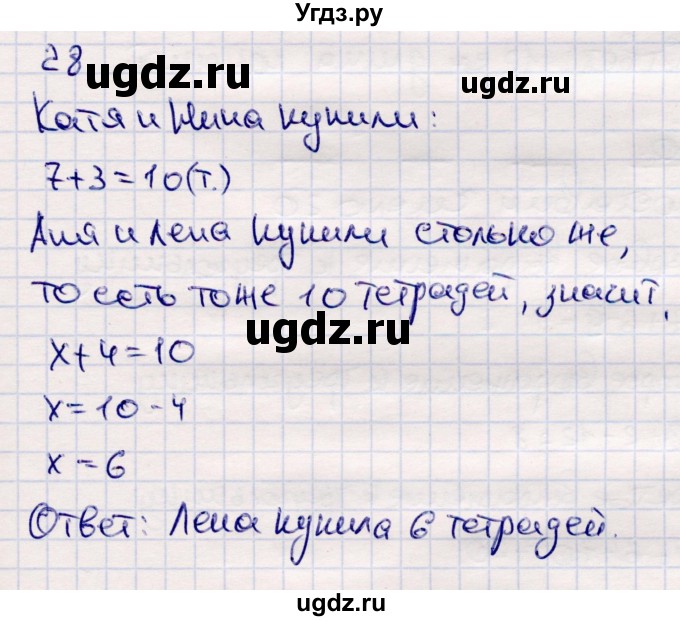 Угдз.ру
28
ugdz.ru
ugdz.ru
Катя и Нина купили:
7+3=10(т.)
Аня и Лена купили столько же,
то есть тоже 10 тетрадей, значит,
ugdz.ru
x+4=10
x=10-4
x=6
Ответ: Лена купила 6 тетрадей.
ugdz.ru